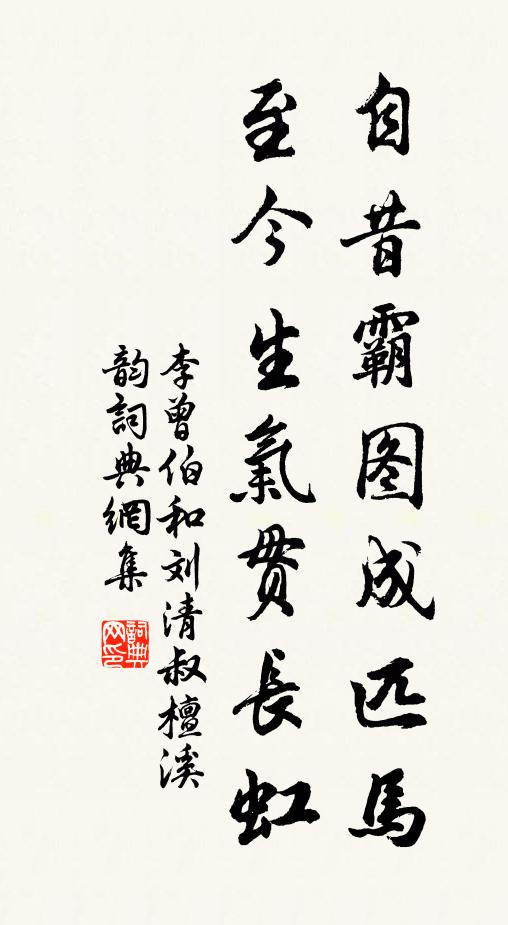 自昔霸图成匹馬
至今生氣贯長虹
李曾伯和刘清叔檀溪
韵詞典網集
詞典網印